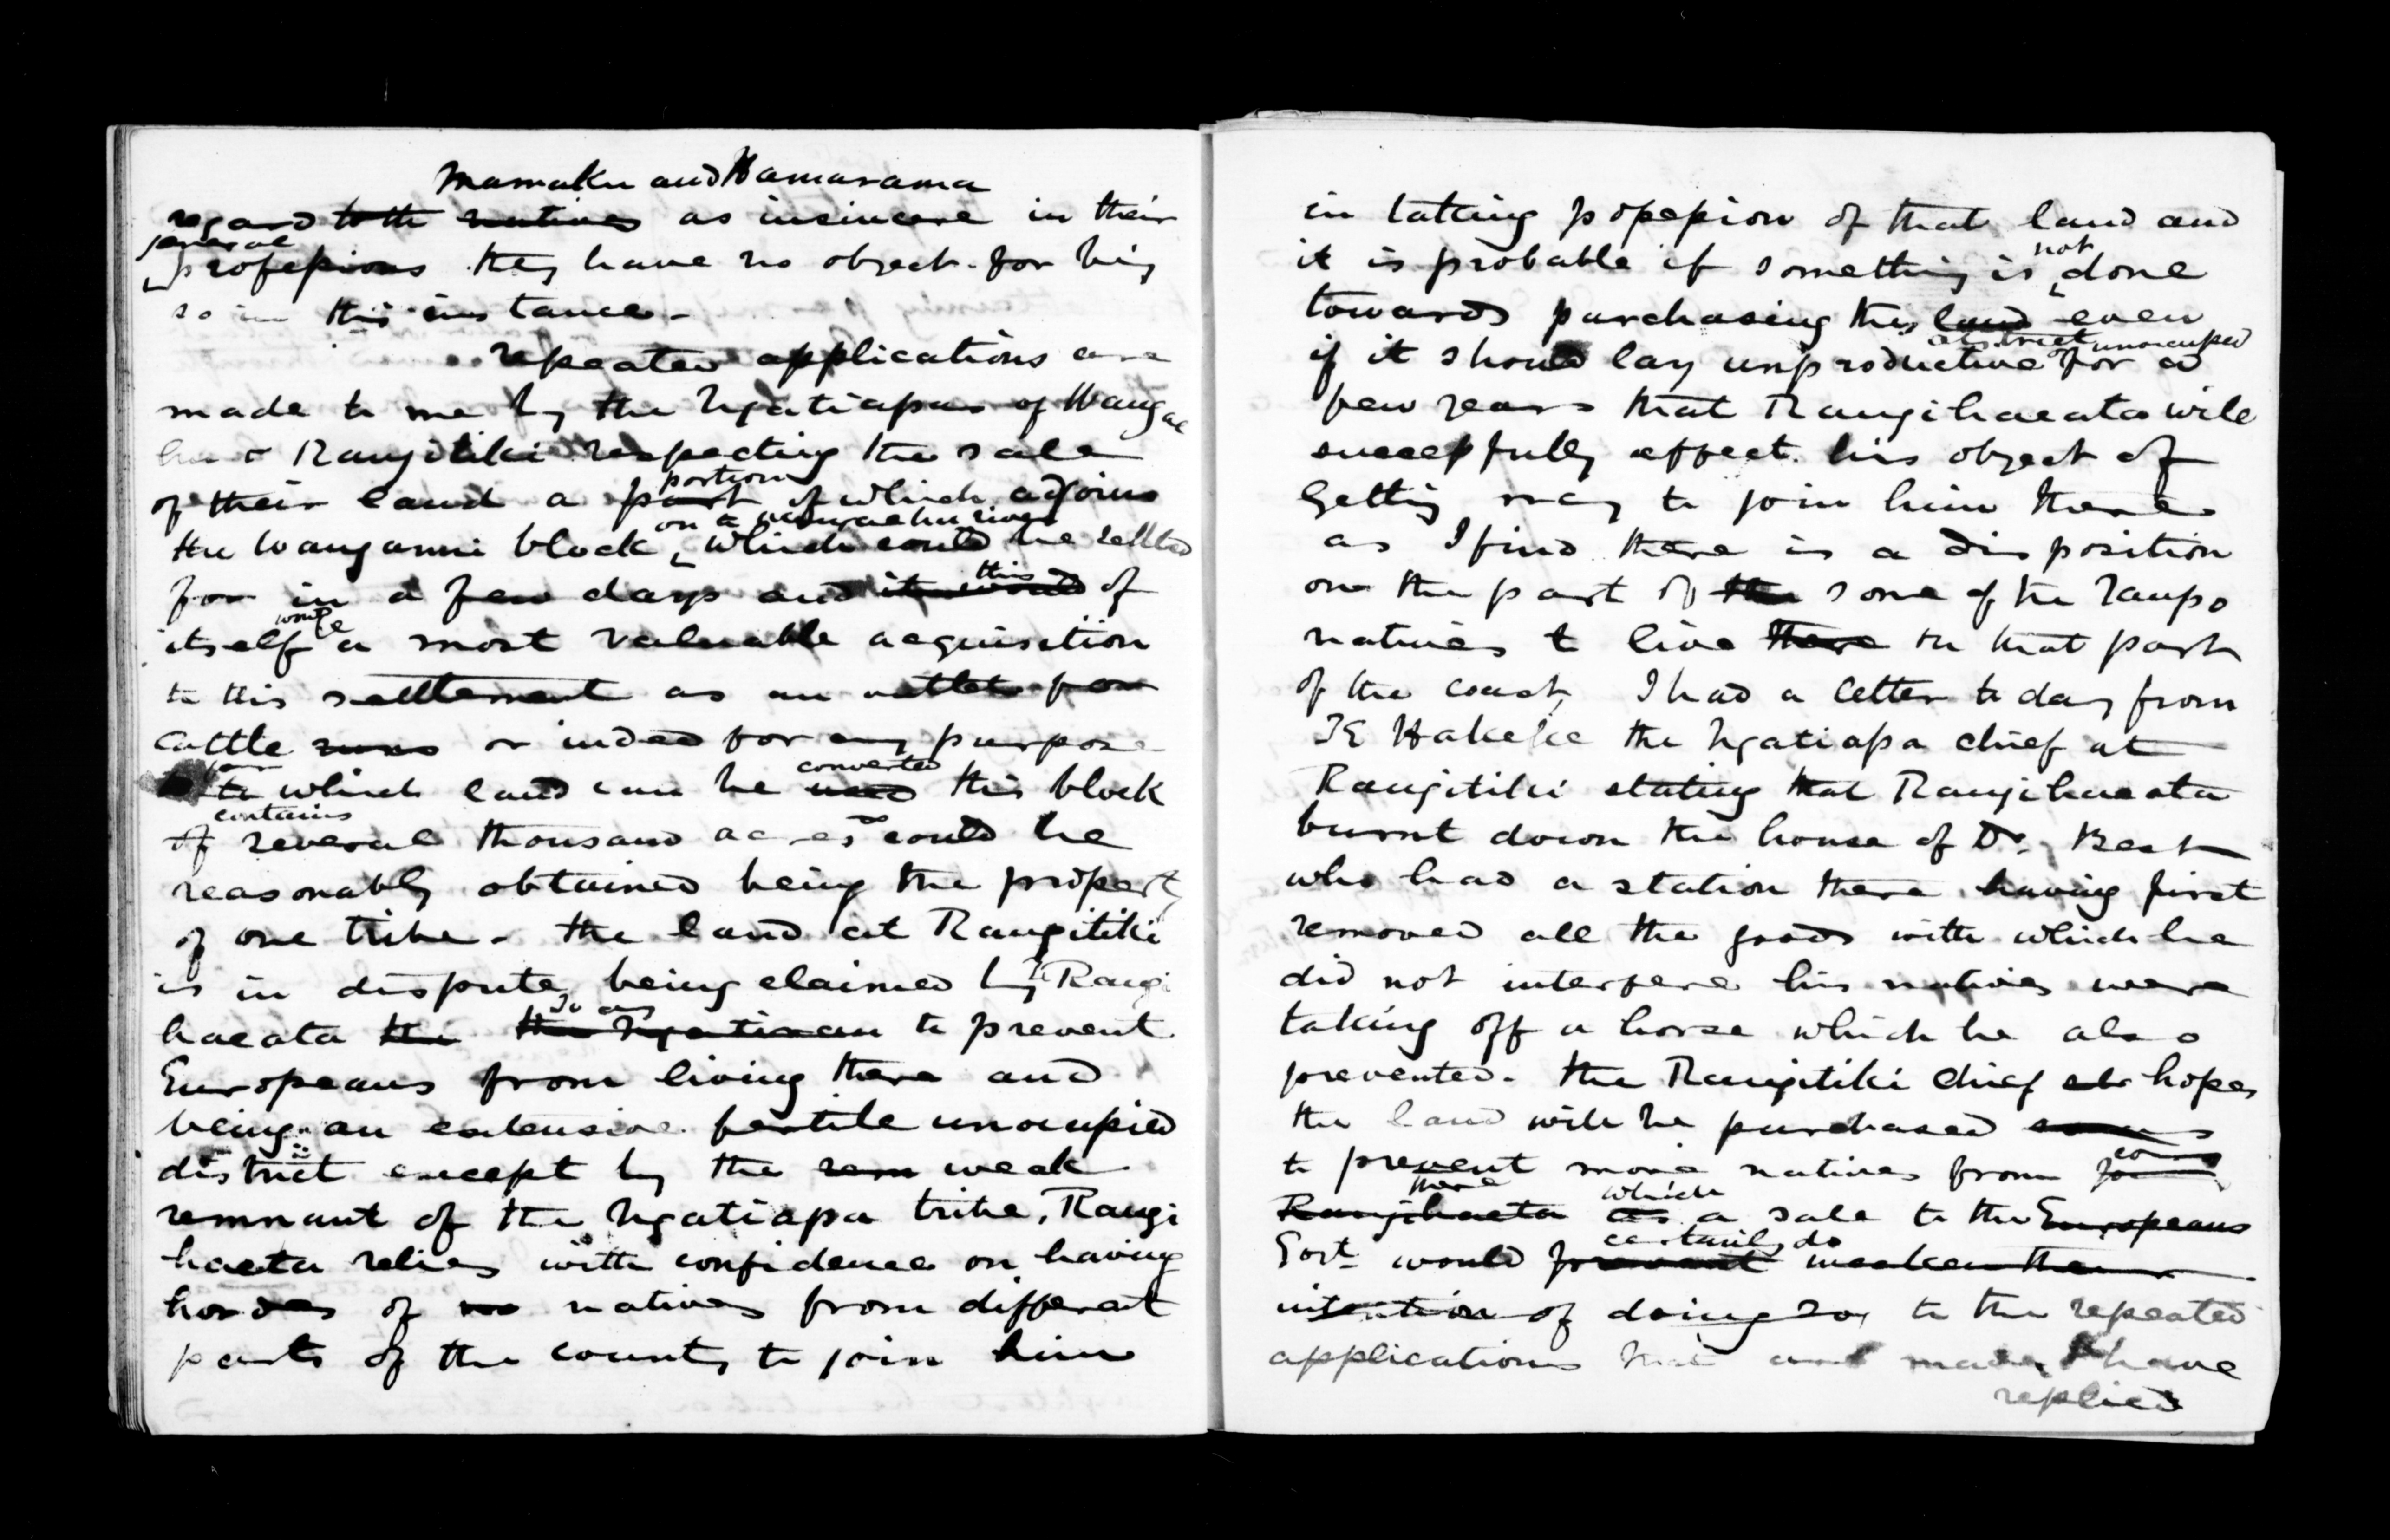 Mamaku and Hamarama
regard to the natives as insincere in their
general
professions they have no object for being
so in this instance -
repeated applications are
made to me by the Ngatiapas of Wangae
hu & Rangitiki respecting the sale
portion
of their land a part of which adjoins
on the river
the Wanganui block, which could be settled
this
for in a few days and it would of
would be
itself a most valuable acquisition
to this settlement as an outlet for
cattle runs or indeed for any purpose
for converted
to which land can be used this block
contains
of several thousand acres & could be
reasonably obtained being the property
of one tribe - the land at Rangitiki
is in dispute being claimed by Rangi
so as
haeata the the to prevent
Europeans from living there and
being an extensive fertile unocupied
district except by the rem weak
remnant of the Ngatiapa tribe, Rangi
haeta relies with confidence on having
hordes of natives from different
parts of the country to join him
in taking possession of that land and
not
it is probable if something is done
towards purchasing this land even
district unocupied
if it should lay unproductive or for a
few years that Rangihaeata will
successfully effect his object of
getting many to join him there
as I find there is a disposition
on the part of the some of the Taupo
natives to live there in that part
of the coast, I had a letter to day from
TE Hakeke the Ngatiapa chief at
Rangitiki stating that Rangihaeata
burnt down the house of Dr. Best
who had a station there having first
removed all the goods with which he
did not interfere his natives were
taking off a horse which he also
prevented - the Rangitiki chief hopes
the land will be purchased
to prevent more natives from
there which
Rangihaeta as a sale to the Europeans
certainly do
Govt would prevent weaken them
intention of doing so, to the repeated
applications that are made I have
replied